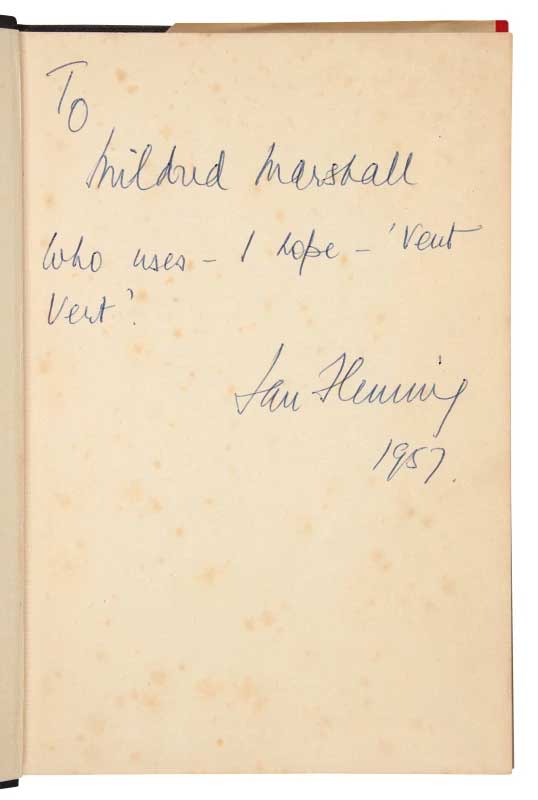 To
Mildred Marshall
Who uses – I hope – 'Vent
Vert'.
Ian Fleming
1957.